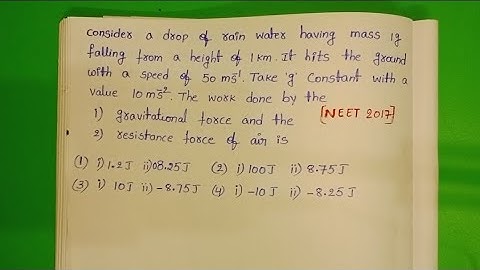 Consider a drop of rain water having mass 1g
falling from a height of 1 km. It hits the ground
with a speed of 50 ms⁻¹. Take 'g' constant with a
value 10 ms⁻². The work done by the
1) gravitational force and the [NEET 2017]
2) resistance force of air is
(1) i) 1.2 J ii) 08.25 J (2) i) 100 J ii) 8.75 J
(3) i) 10 J ii) -8.75 J (4) i) -10 J ii) -8.25 J